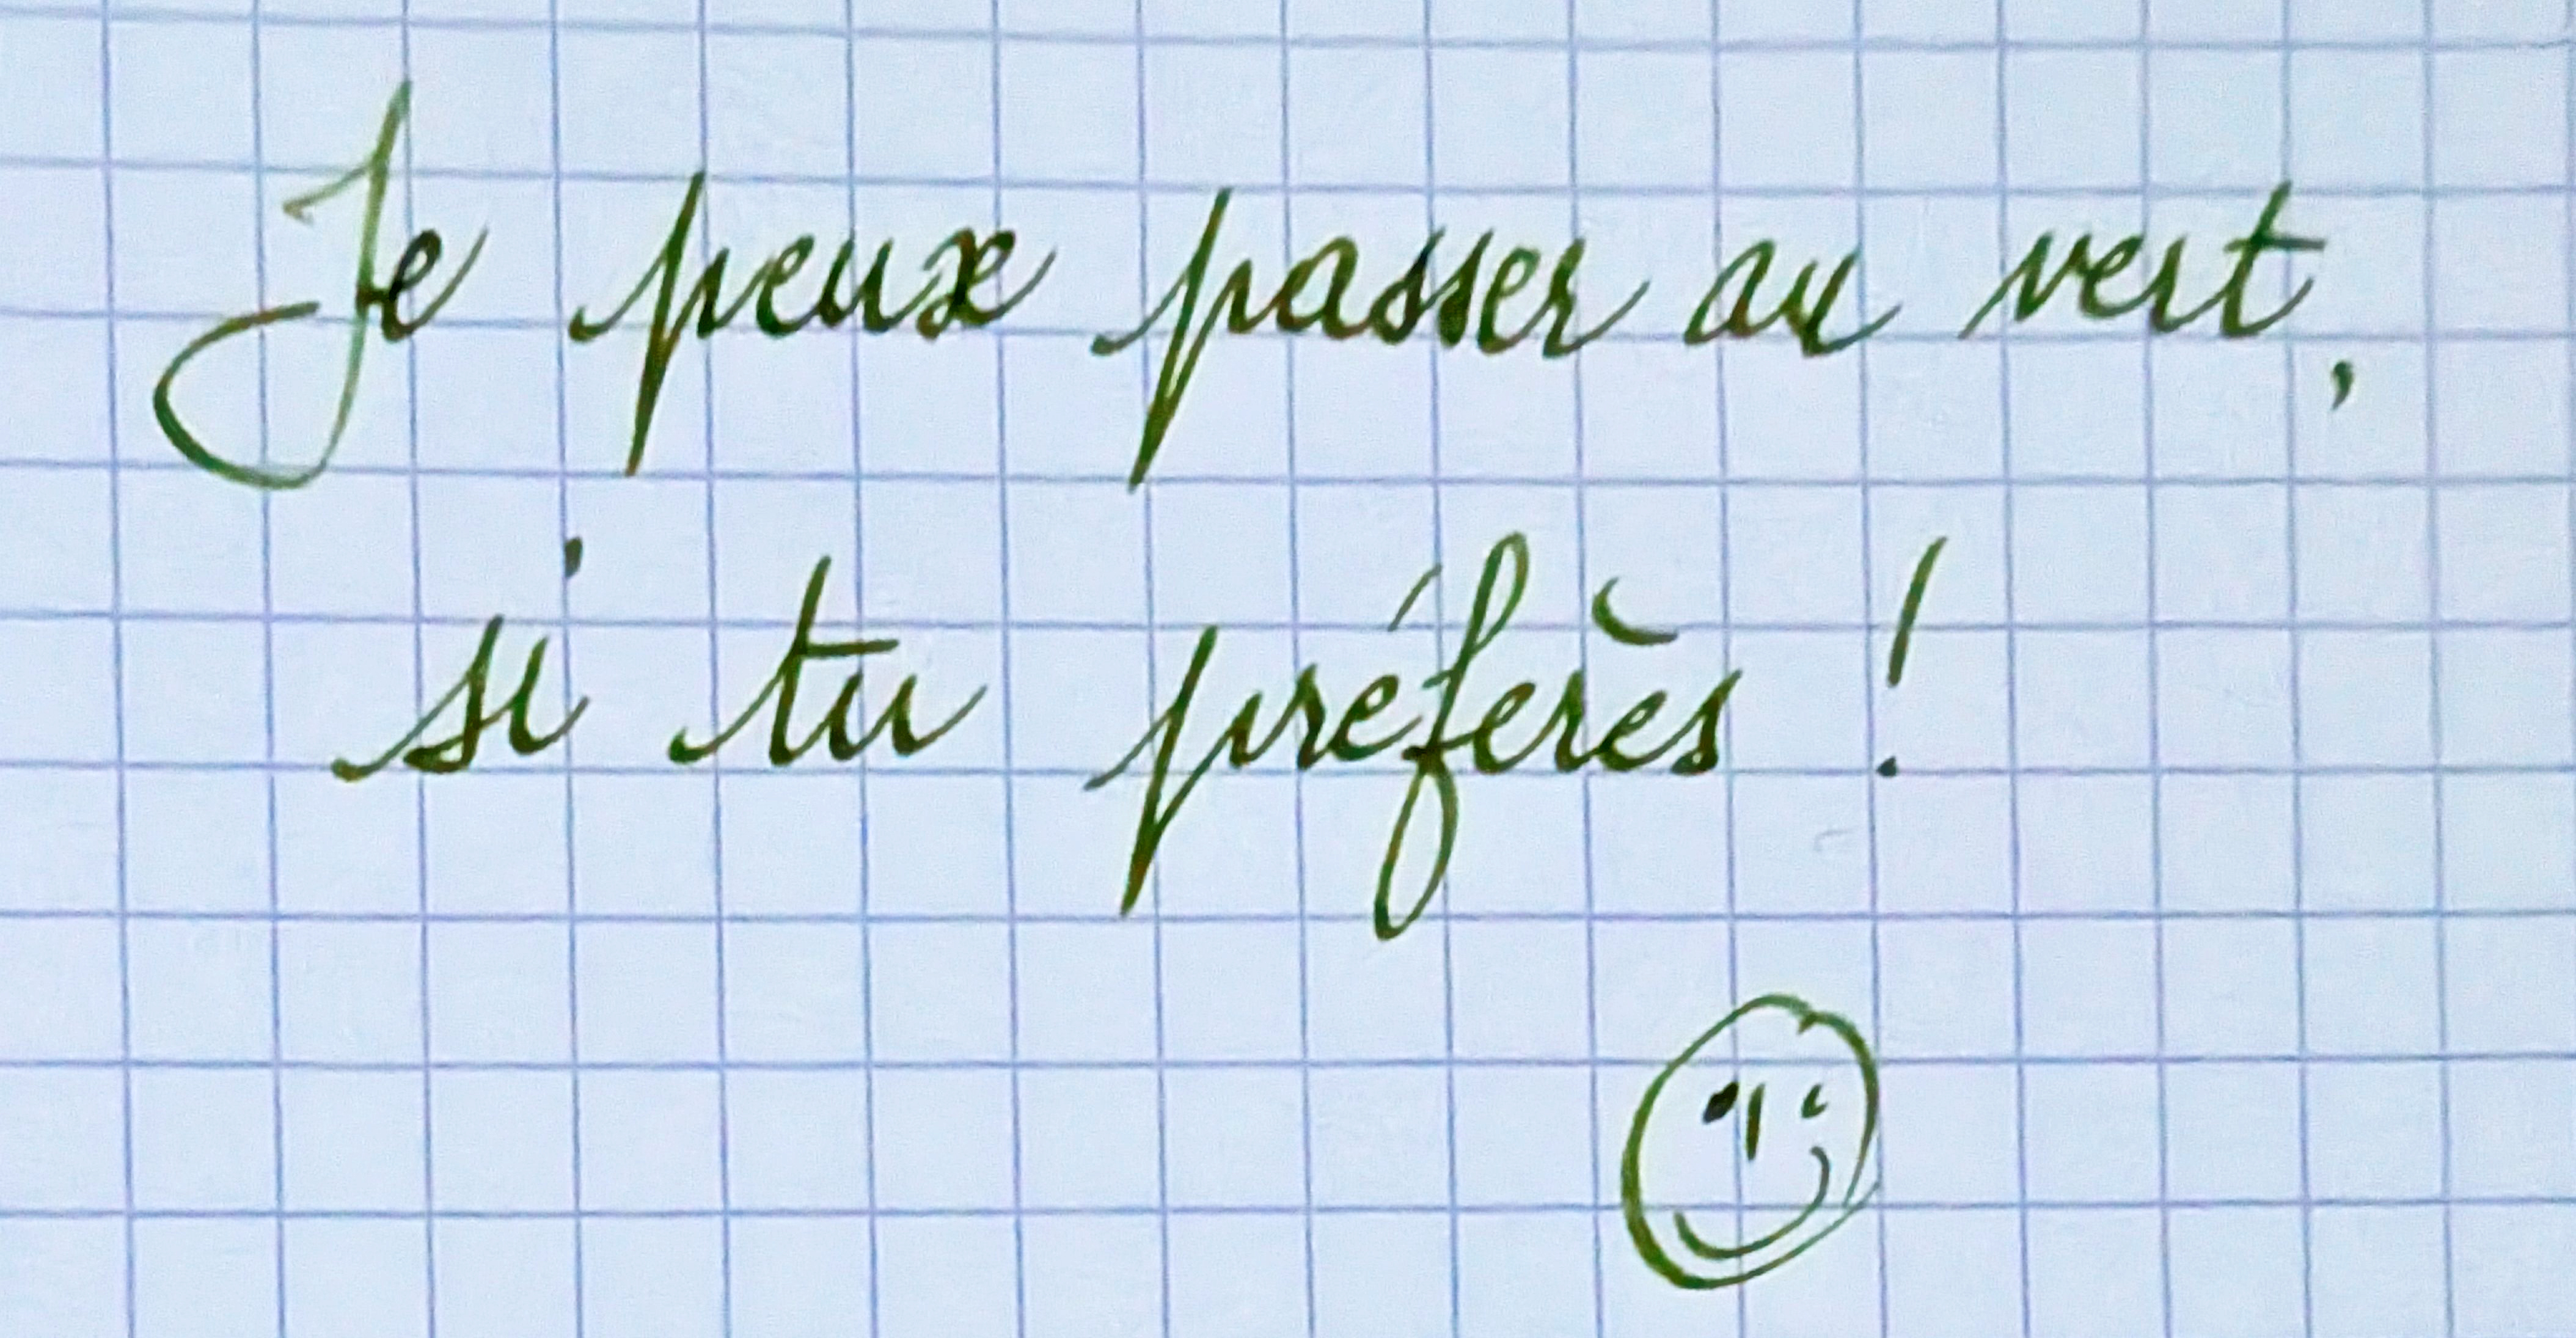 Je peux passer au vert,
si tu préferès !